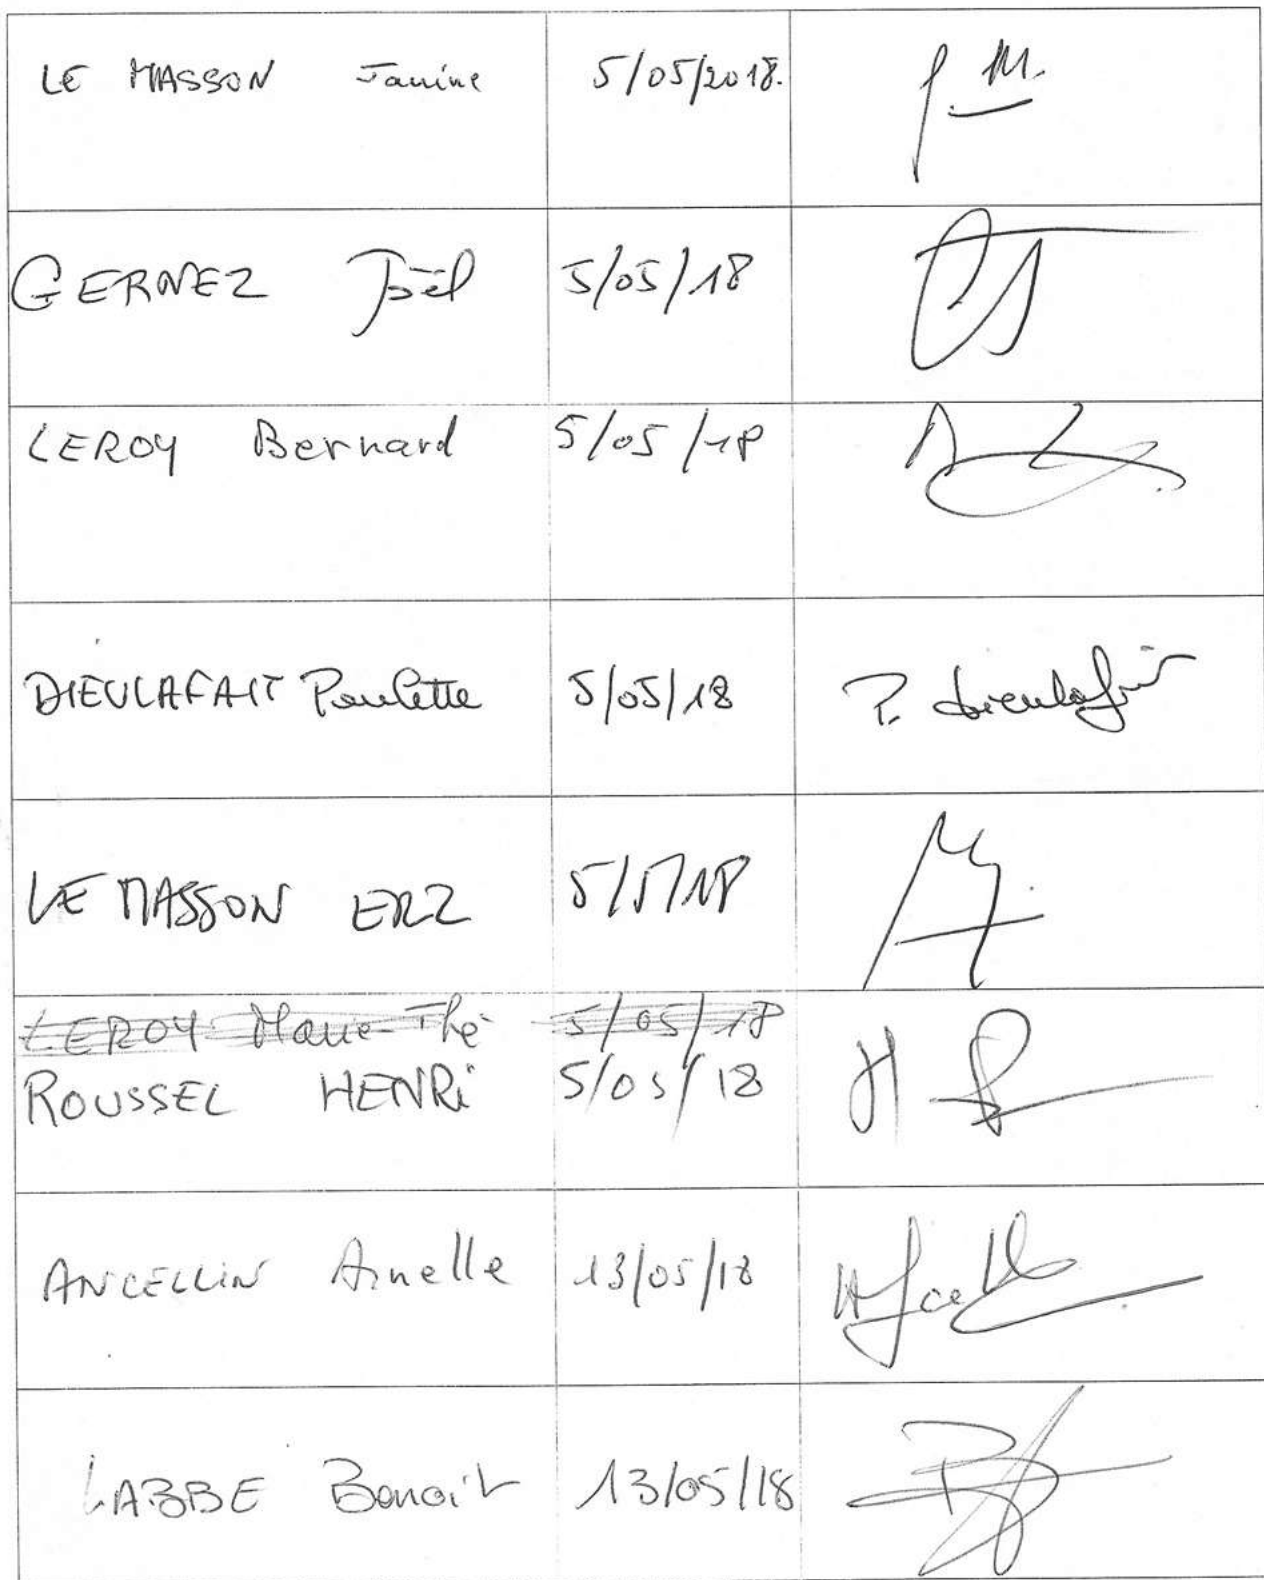 LE MASSON Janine 5/05/2018. J. M.
GERNEZ Joël 5/05/18
LEROY Bernard 5/05/18
DIEULAFAIT Paulette 5/05/18 P. Dieulafait
LE MASSON 5/5/18
LEROY Marie-Thé 5/05/18
ROUSSEL HENRi 5/05/18
ANCELLIN Armelle 13/05/18
LABBE Benoit 13/05/18